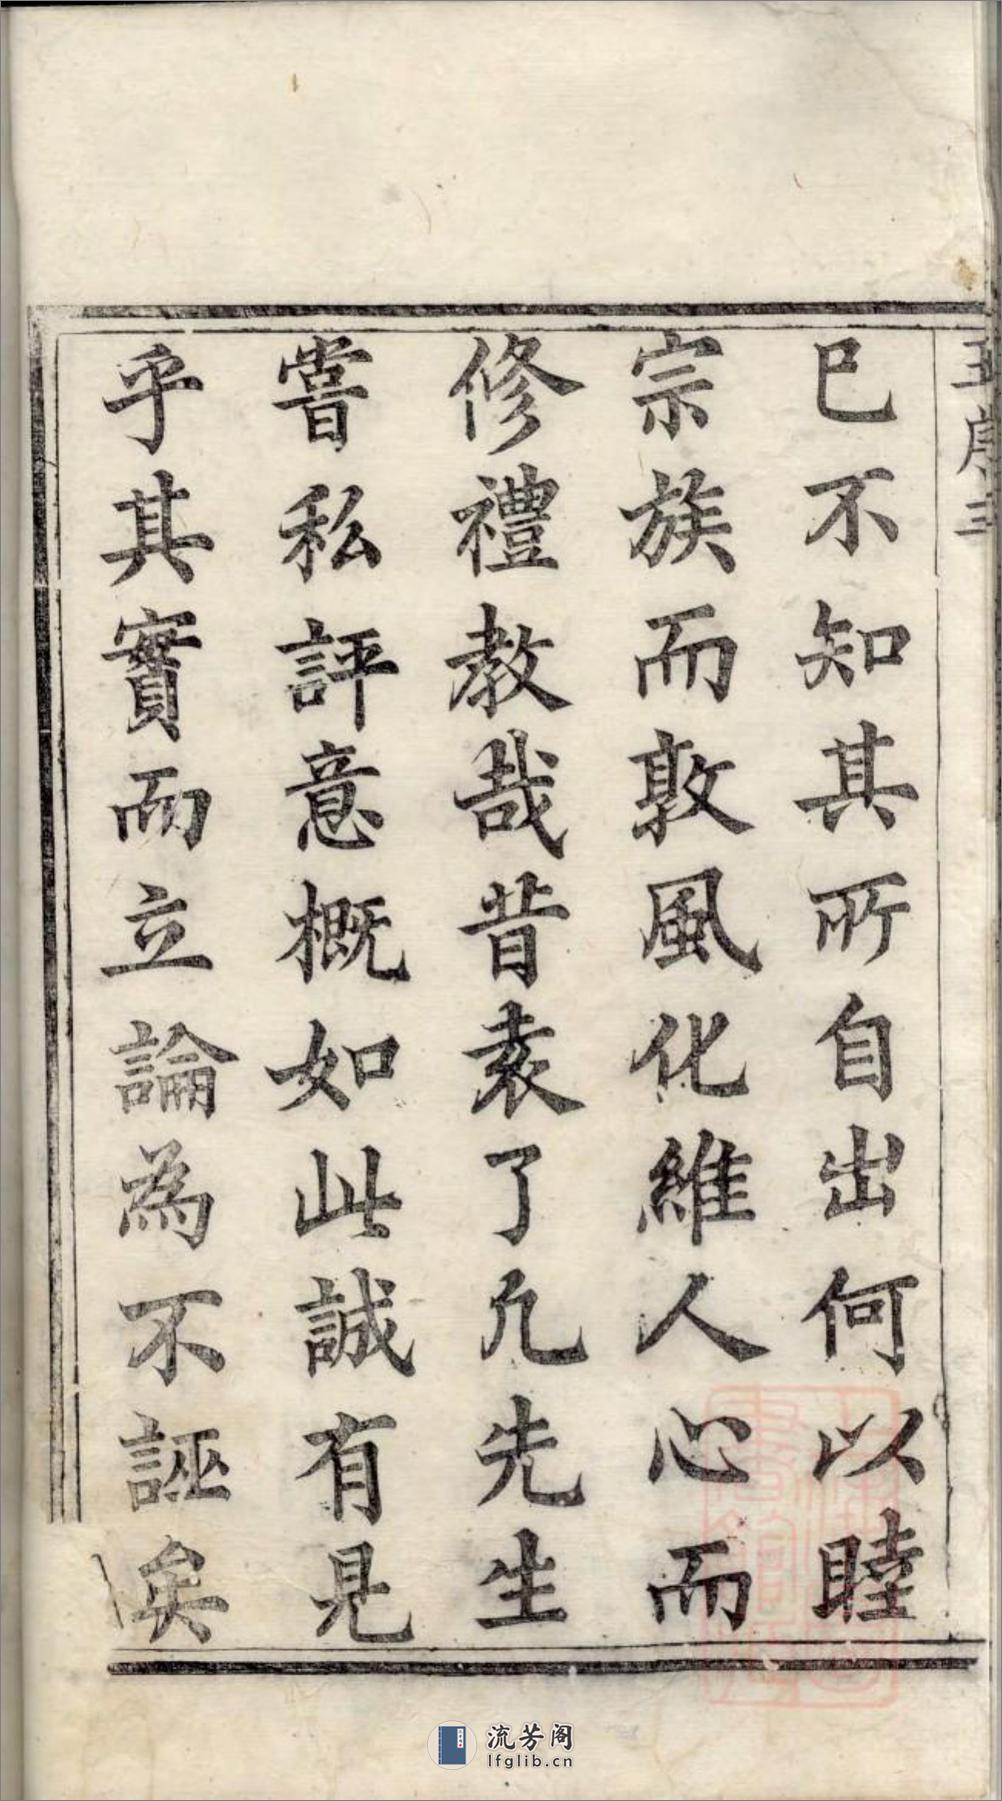 巳不知其所自出何以睦
宗族而敦風化維人心而
修禮教哉昔袁了凡先生
嘗私評意概如此誠有見
乎其實而立論為不誣矣
流芳阁
lfglib.cn